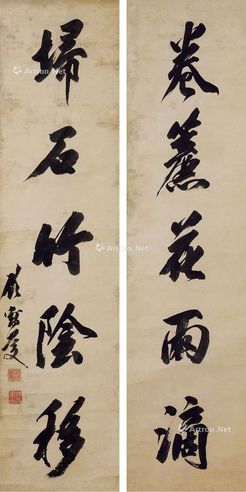 卷簾花雨滴
掃石竹陰移
Artron.Net
Artron.Net
Artron.Net
Artron.Net